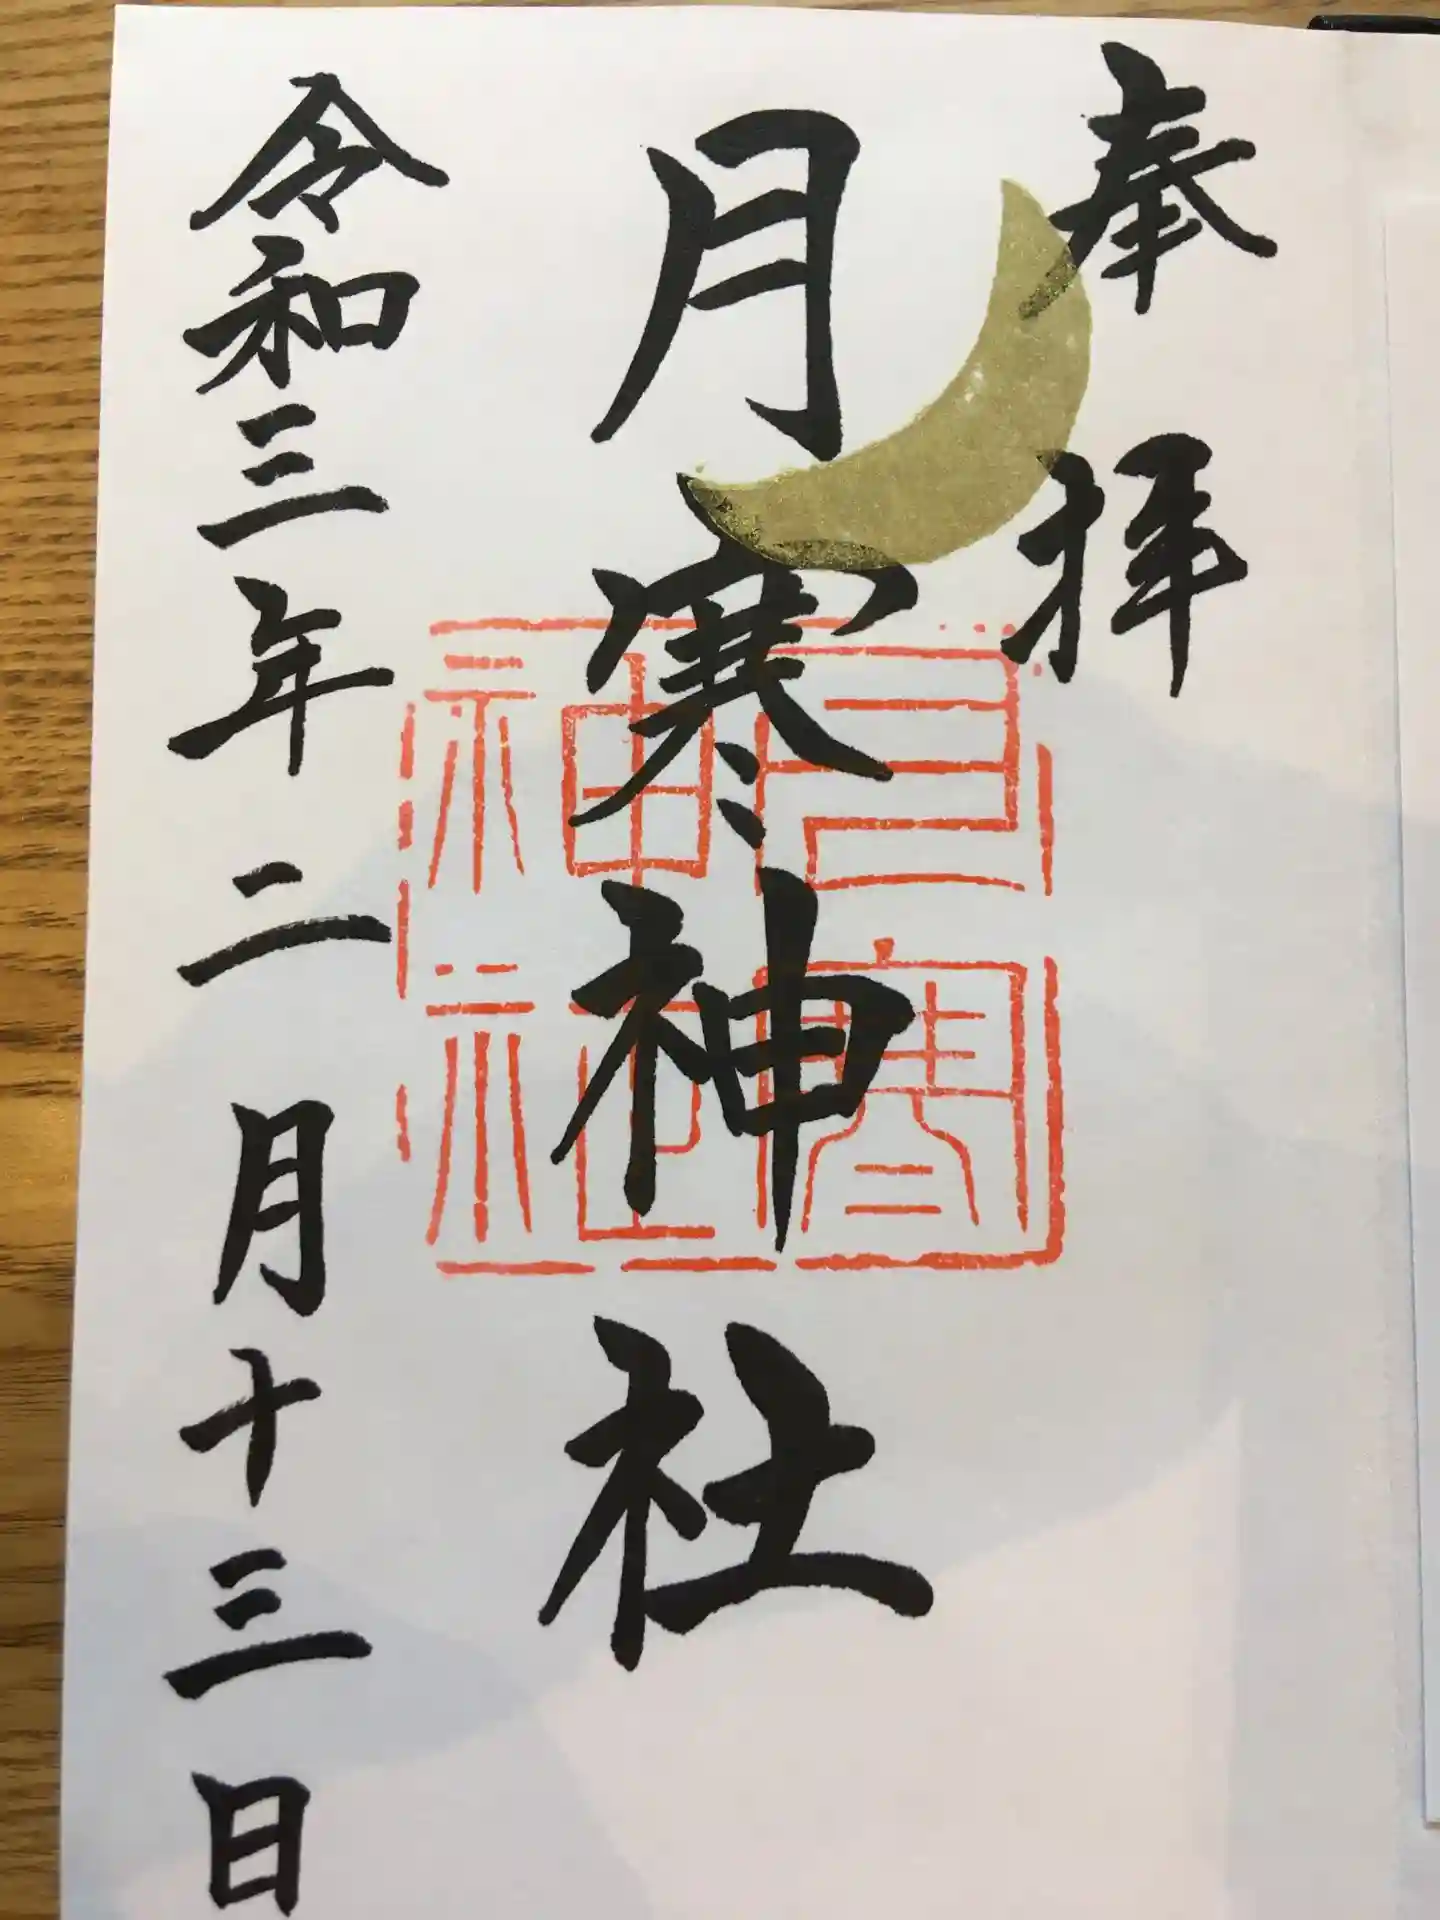 奉拝
月寒神社
月寒神社
令和三年二月十三日